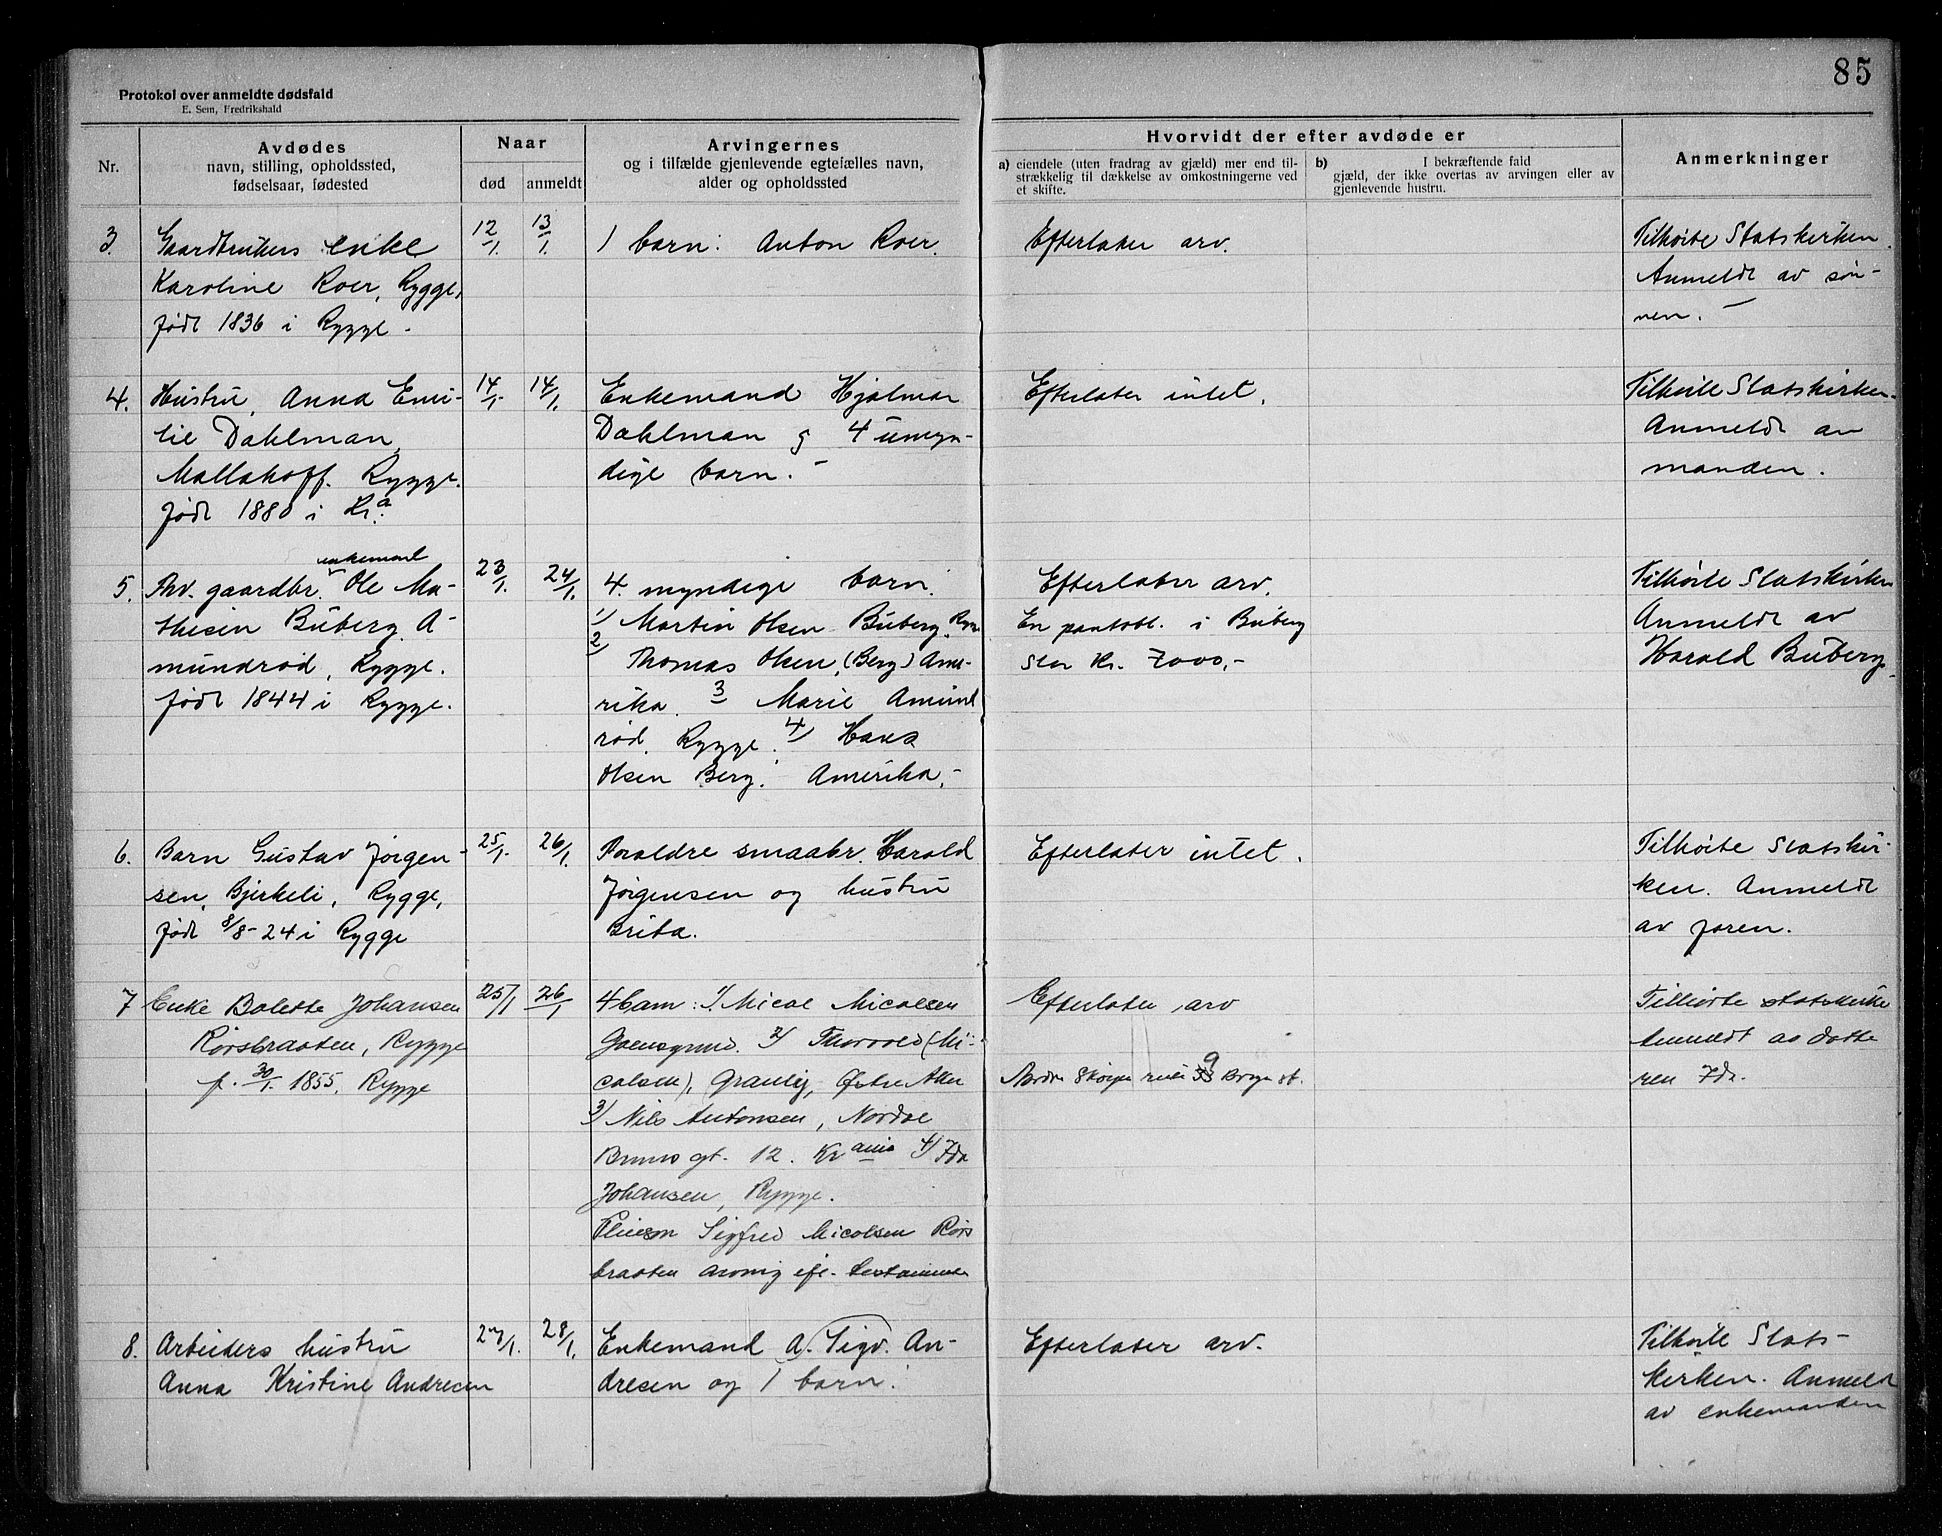 85
Protokol over anmeldte dødsfald
E. Sem, Fredrikshald
Nr.
Avdødes
navn, stilling, opholdssted,
fødselsaar, fødested
Naar
død
anmeldt
Arvingernes
og i tilfælde gjenlevende egtefælles navn,
alder og opholdssted
Hvorvidt der efter avdøde er
a) eiendele (uten fradrag av gjæld) mer end til-
strækkelig til dækkelse av omkostningerne ved
et skifte.
b) I bekræftende fald
gjæld, der ikke overtas av arvingen eller av
gjenlevende hustru.
Anmerkninger
3.
Gaardbrukers enke
Karoline Roer, Rygge,
født 1836 i Rygge.
12/1.
13/1.
1 barn: Anton Roer.
Efterlater arv.
Tilhørte Statskirken.
Anmeldt av søn-
nen.
4.
Hustru, Anna Emi-
lie Dahlman,
Mallakoff. Rygge.
født 1880 i Kr.a
14/1.
14/1.
Enkemand Hjalmar
Dahlman og 4 umyn-
dige barn.
Efterlater intet.
Tilhørte Statskirken.
Anmeldt av
manden.
5.
enkemand
Fhv. gaardbr. Ole Ma-
thisen Buberg, A-
mundrød, Rygge.
født 1844 i Rygge.
23/1.
24/1.
4. myndige barn.
1/ Martin Olsen Buberg,
2/ Thomas Olsen, (Berg) Ame-
rika. 3 Marie Amund
rød. Rygge. 4/ Hans
Olsen Berg. Amerika.
Efterlater arv.
En pantobl. i Buberg
stor kr. 7000,-
Tilhørte Statskirken
Anmeldt av
Harald Buberg.
6.
Barn Gustav Jørgen-
sen, Bjerkeli, Rygge,
født 8/8-24 i Rygge
25/1.
26/1.
Foraldre smaabr. Harald
Jørgensen og hustru
Brita.
Efterlater intet.
Tilhørte Statskir-
ken. Anmeldt
av faren.
7
Enke Bolette Johansen
Rørsbraaten, Rygge
f. 30/1. 1855, Rygge
25/1
26/1
4 barn: 1/ Nicolai Nicolaisen
2/ Thorvald (Ni-
colsen), Granlig, Østre Aker
3/ Nils Antonsen, Nordre
gt. 12. Kr ania 4/ Ida
Johansen, Rygge.
Pleiesøn Sigfred Nicolsen Rørs
braaten arving efe. testamente
Efterlater arv
Tilhørte statskirke
Anmeldt av datte
ren Ida.
8.
Arbeiders hustru
Anna Kristine Andresen
27/1.
28/1.
Enkemand A. Sigv. An-
dresen og 1 barn.
Efterlater arv.
Tilhørte Stats-
kirken. Anmeldt
av enkemanden